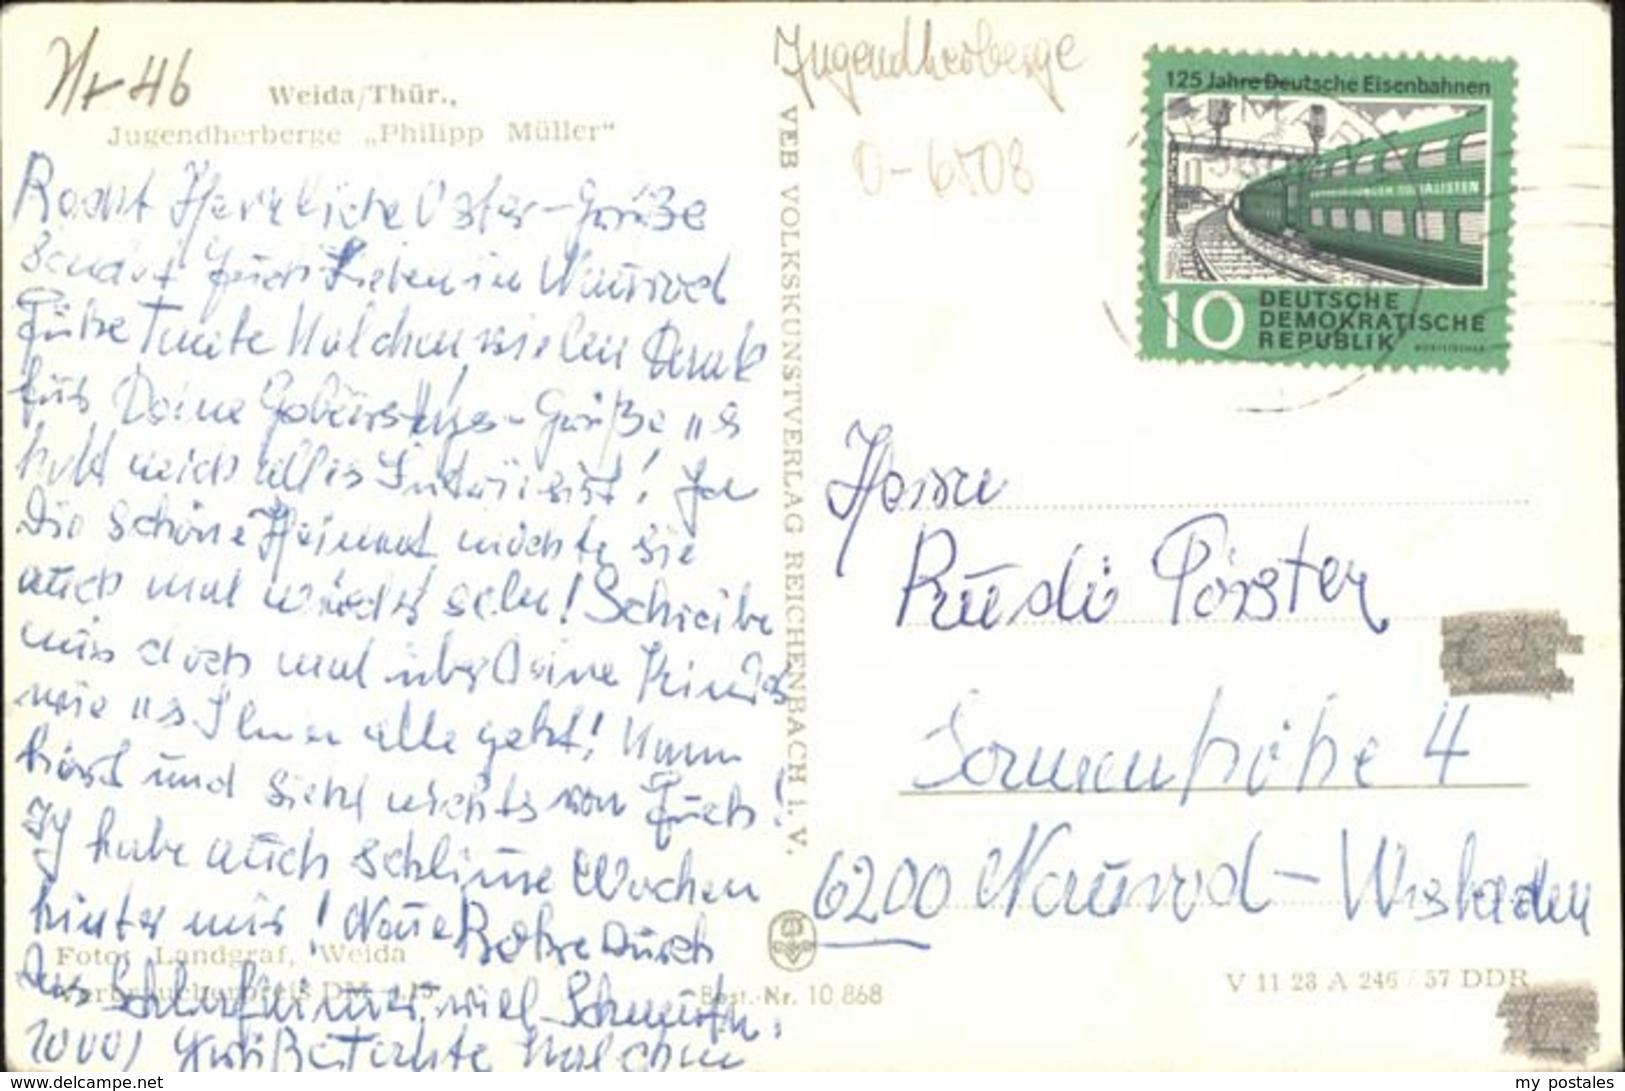 Nr 46
Weida/Thür.,
Jugendherberge „Philipp Müller“
Recht Herzliche Oster-Grüße
Sendet Euch Lieben in Naurod
Tante Malchen, vielen Dank
für Deine Geburtstags-Grüße
hatt mich alles Intärisirt! Ja
Die schöne Heimat möchte sie
auch mal wieder sehn! Schreibe
mir doch mal über Deine Kinder
wie es Ihnen alle geht! Mann
hört und sieht nichts von Euch!
Ich habe auch schlimme Wochen
hinter mir! Neue Rohre Durch
Das Schlafzimmer, viel Schmutz.
1000) Grüße Tante Malchen
Foto: Landgraf, Weida
Verbraucherpreis DM
Best.-Nr. 10 868
VEB VOLKSKUNSTVERLAG REICHENBACH I. V.
Jugendherberge
O-6508
125 Jahre Deutsche Eisenbahnen
10 DEUTSCHE
DEMOKRATISCHE
REPUBLIK
Herrn
Rudi Förster
Sonnenhöhe 4
6200 Naurod-Wiesbaden
V 11 23 A 246 / 57 DDR
www.delcampe.net
my postales